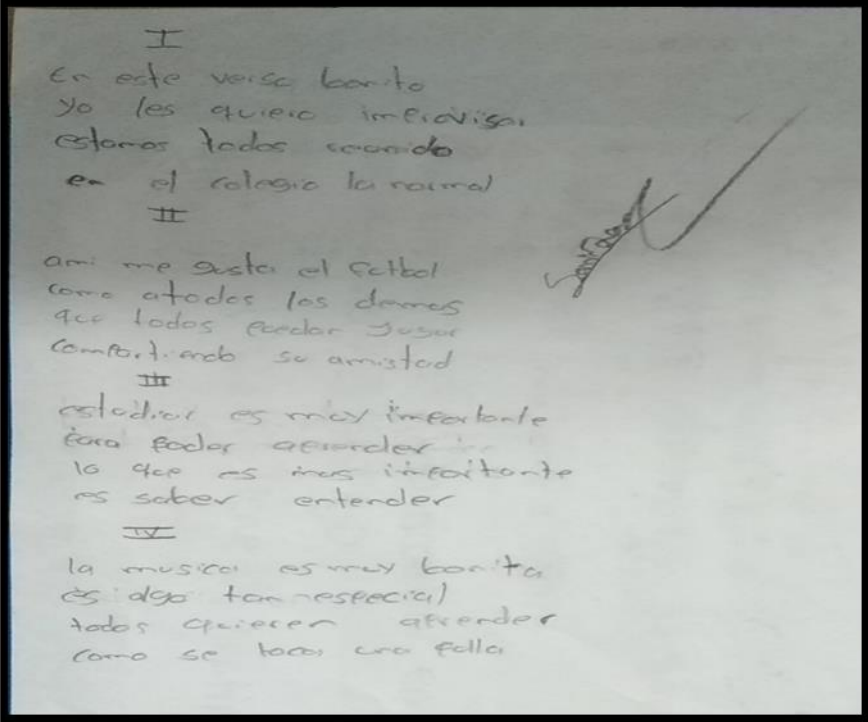 I
En este verso bonito
yo les quiero improvisar
estamos todos reunido
en el colegio la normal
II
ami me gusta el futbol
como atodos los demas
que todos puedan jugar
compartiendo su amistad
III
estudiar es muy importante
para poder aprender
lo que es mas importante
es saber entender
IV
la musica es muy bonita
es algo tan especial
todos quieren aprender
como se toca una